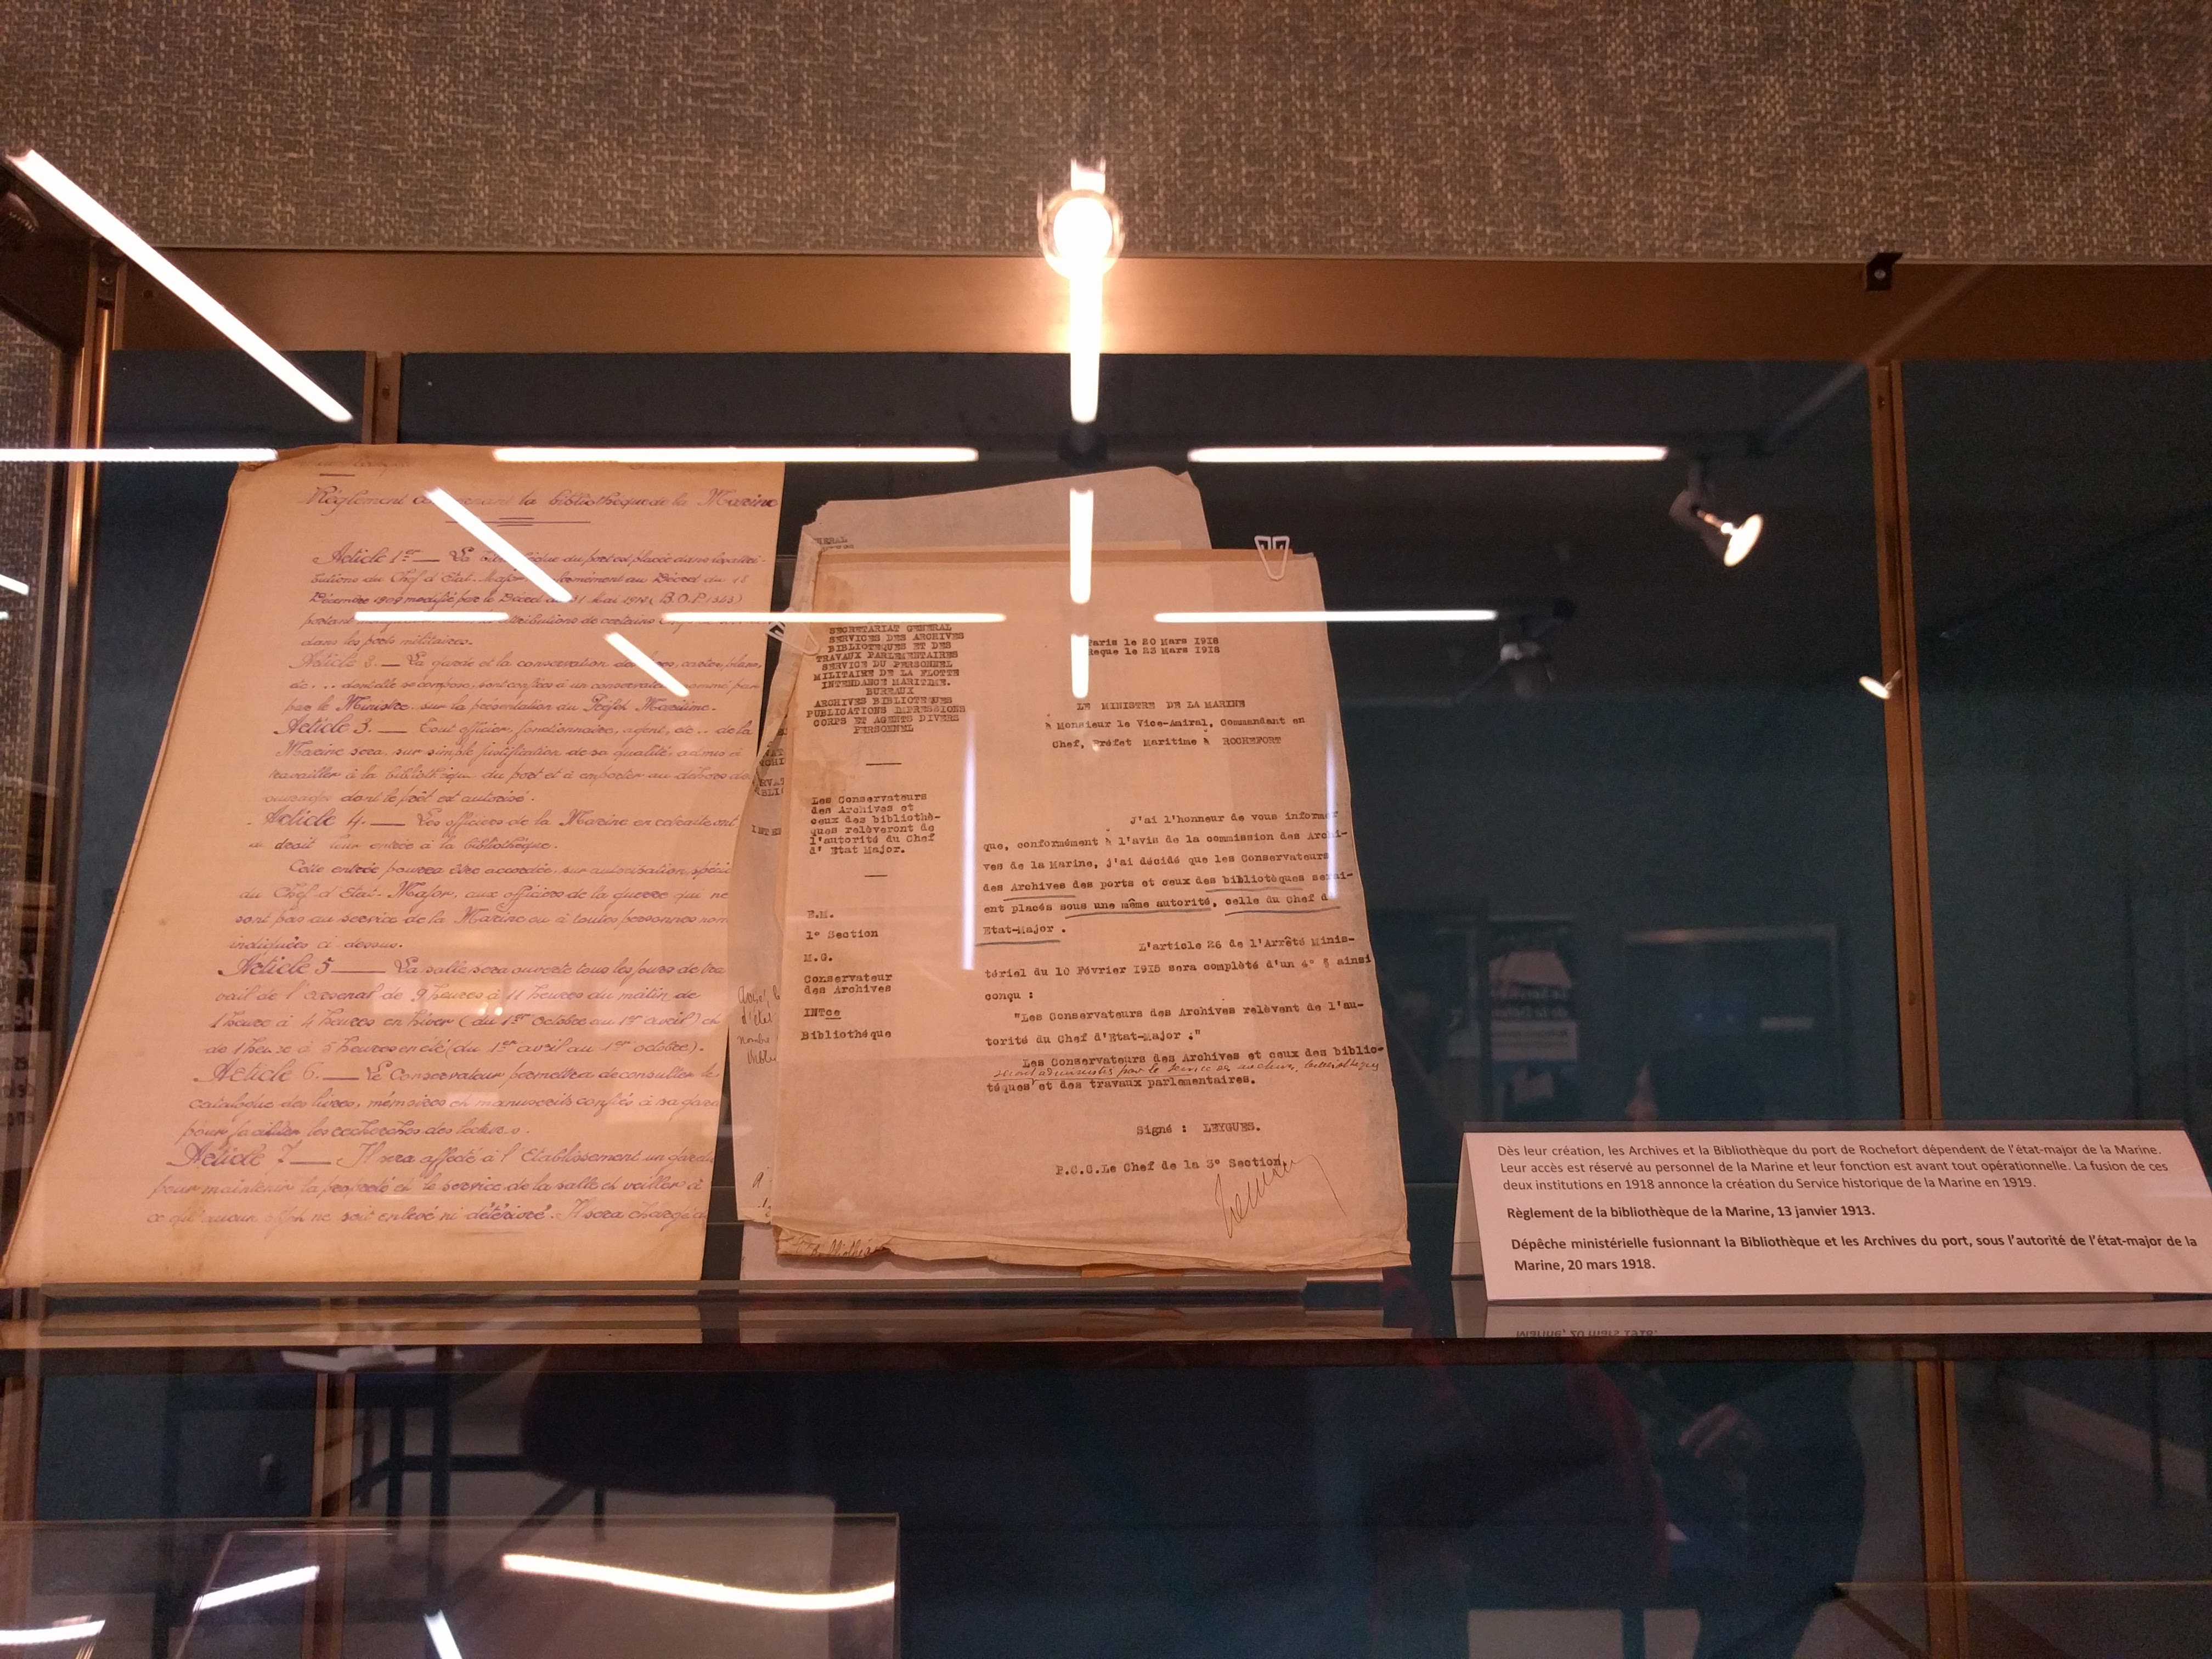 Règlement la bibliothèque de la Marine
Article 1er — La du port est placée dans les attri-
butions du Chef d'Etat-Major au Décret du 18
Décembre 1909 modifié par le Décret du 31 Mai 1912 (B.O.P. 1343)
portant attributions de certains
dans les ports militaires.
— La garde et la conservation des livres, cartes, plans,
etc... dont elle se compose, sont confiées à un conservateur nommé par
par le Ministre sur la présentation du Préfet Maritime.
Article 3. — Tout officier, fonctionnaire, agent, etc.. de la
Marine sera, sur simple justification de sa qualité, admis à
travailler à la bibliothèque du port et à emporter au dehors des
ouvrages dont le prêt est autorisé.
Article 4. — Les officiers de la Marine en retraite ont
droit leur entrée à la bibliothèque.
Cette entrée pourra être accordée, sur autorisation spéci
du Chef d'Etat-Major, aux officiers de la guerre qui ne
sont pas au service de la Marine ou à toutes personnes non
indiquées ci-dessus.
Article 5 — La salle sera ouverte tous les jours de tra
vail de l'arsenal de 9 heures à 11 heures du matin de
1 heure à 4 heures en hiver (du 1er octobre au 1er avril) et
de 1 heure à 5 heures en été (du 1er avril au 1er octobre).
Article 6. — Le Conservateur permettra de consulter le
catalogue des livres, mémoires et manuscrits confiés à sa garde
pour faciliter les recherches des lecteurs.
Article 7 — Il sera affecté à l'Etablissement un gardien
pour maintenir la propreté et le service de la salle et veiller à
ce qu'aucun ne soit enlevé ni détérioré. Il sera chargé
SECRETARIAT GENERAL
SERVICES DES ARCHIVES
BIBLIOTEQUES ET DES
TRAVAUX PARLEMENTAIRES
SERVICE DU PERSONNEL
MILITAIRE DE LA FLOTTE
INTENDANCE MARITIME.
BUREAUX
ARCHIVES BIBLIOTEQUES
PUBLICATIONS IMPRESSIONS
CORPS ET AGENTS DIVERS
PERSONNEL
Les Conservateurs
des Archives et
ceux des bibliothè-
ques relèveront de
l'autorité du Chef
d' Etat Major.
E.M.
1° Section
M.G.
Conservateur
des Archives
INTce
Bibliothéque
Paris le 20 Mars 1918
Reçue le 23 Mars 1918
LE MINISTRE DE LA MARINE
à Monsieur le Vice-Amiral, Commandant en
Chef, Préfet Maritime à ROCHEFORT
J'ai l'honneur de vous informer
que, conformément à l'avis de la commission des Archi-
ves de la Marine, j'ai décidé que les Conservateurs
des Archives des ports et ceux des bibliotèques serai-
ent placés sous une même autorité, celle du Chef d'
Etat-Major .
L'article 26 de l'Arrêté Minis-
tériel du 10 Février 1915 sera complèté d'un 4° § ainsi
conçu :
"Les Conservateurs des Archives relèvent de l'au-
torité du Chef d'Etat-Major :"
Les Conservateurs des Archives et ceux des biblio-
seront administrés par le service des archives, bibliothèques
tèques et des travaux parlementaires.
Signé : LEYGUES.
P.C.C.Le Chef de la 3° Section
Dès leur création, les Archives et la Bibliothèque du port de Rochefort dépendent de l'état-major de la Marine.
Leur accès est réservé au personnel de la Marine et leur fonction est avant tout opérationnelle. La fusion de ces
deux institutions en 1918 annonce la création du Service historique de la Marine en 1919.
Règlement de la bibliothèque de la Marine, 13 janvier 1913.
Dépêche ministérielle fusionnant la Bibliothèque et les Archives du port, sous l'autorité de l'état-major de la
Marine, 20 mars 1918.